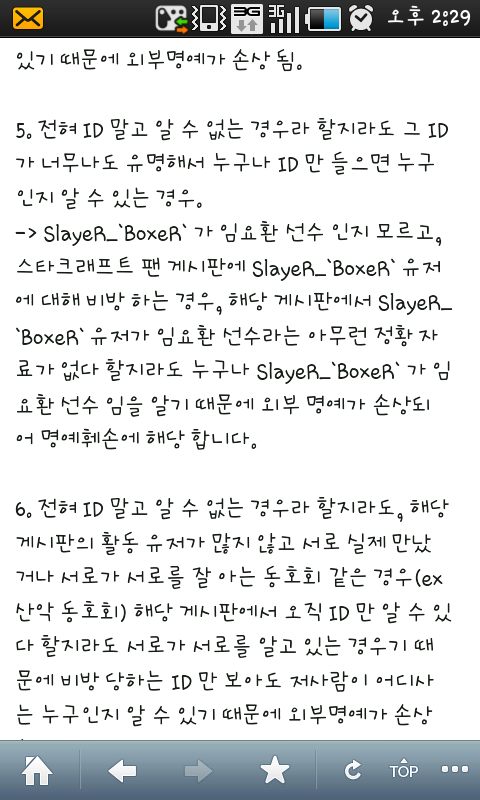 3G
3G
오후 2:29
있기 때문에 외부명예가 손상 됨.
5. 전혀 ID 말고 알 수 없는 경우라 할지라도 그 ID
가 너무나도 유명해서 누구나 ID 만 들으면 누구
인지 알 수 있는 경우.
-> SlayeR_`BoxeR` 가 임요환 선수 인지 모르고,
스타크래프트 팬 게시판에 SlayeR_`BoxeR` 유저
에 대해 비방 하는 경우, 해당 게시판에서 SlayeR_
`BoxeR` 유저가 임요환 선수라는 아무런 정황 자
료가 없다 할지라도 누구나 SlayeR_`BoxeR` 가 임
요환 선수 임을 알기 때문에 외부 명예가 손상되
어 명예훼손에 해당 합니다.
6. 전혀 ID 말고 알 수 없는 경우라 할지라도, 해당
게시판의 활동 유저가 많지 않고 서로 실제 만났
거나 서로가 서로를 잘 아는 동호회 같은 경우(ex
산악 동호회) 해당 게시판에서 오직 ID 만 알 수 있
다 할지라도 서로가 서로를 알고 있는 경우기 때
문에 비방 당하는 ID 만 보아도 저사람이 어디사
는 누구인지 알 수 있기 때문에 외부명예가 손상
TOP